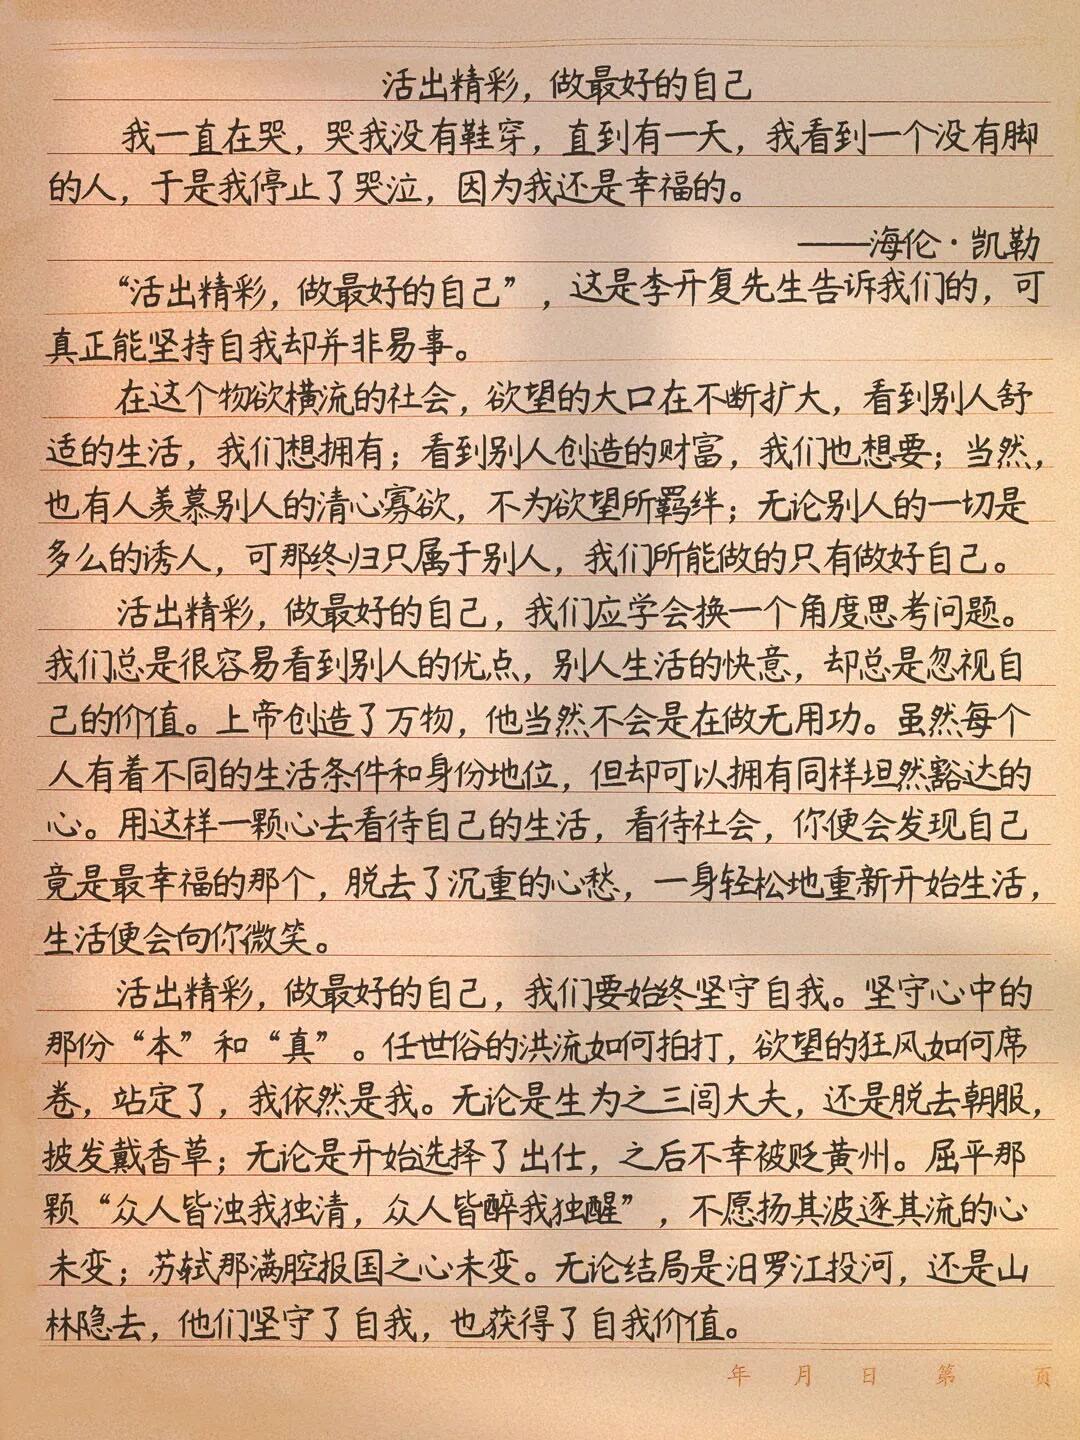 活出精彩，做最好的自己
我一直在哭，哭我没有鞋穿，直到有一天，我看到一个没有脚
的人，于是我停止了哭泣，因为我还是幸福的。
——海伦·凯勒
“活出精彩，做最好的自己”，这是李开复先生告诉我们的，可
真正能坚持自我却并非易事。
在这个物欲横流的社会，欲望的大口在不断扩大，看到别人舒
适的生活，我们想拥有；看到别人创造的财富，我们也想要；当然，
也有人羡慕别人的清心寡欲，不为欲望所羁绊；无论别人的一切是
多么的诱人，可那终归只属于别人，我们所能做的只有做好自己。
活出精彩，做最好的自己，我们应学会换一个角度思考问题。
我们总是很容易看到别人的优点，别人生活的快意，却总是忽视自
己的价值。上帝创造了万物，他当然不会是在做无用功。虽然每个
人有着不同的生活条件和身份地位，但却可以拥有同样坦然豁达的
心。用这样一颗心去看待自己的生活，看待社会，你便会发现自己
竟是最幸福的那个，脱去了沉重的心愁，一身轻松地重新开始生活，
生活便会向你微笑。
活出精彩，做最好的自己，我们要始终坚守自我。坚守心中的
那份“本”和“真”。任世俗的洪流如何拍打，欲望的狂风如何席
卷，站定了，我依然是我。无论是生为之三闾大夫，还是脱去朝服，
披发戴香草；无论是开始选择了出仕，之后不幸被贬黄州。屈平那
颗“众人皆浊我独清，众人皆醉我独醒”，不愿扬其波逐其流的心
未变；苏轼那满腔报国之心未变。无论结局是汨罗江投河，还是山
林隐去，他们坚守了自我，也获得了自我价值。
年 月 日 第 页